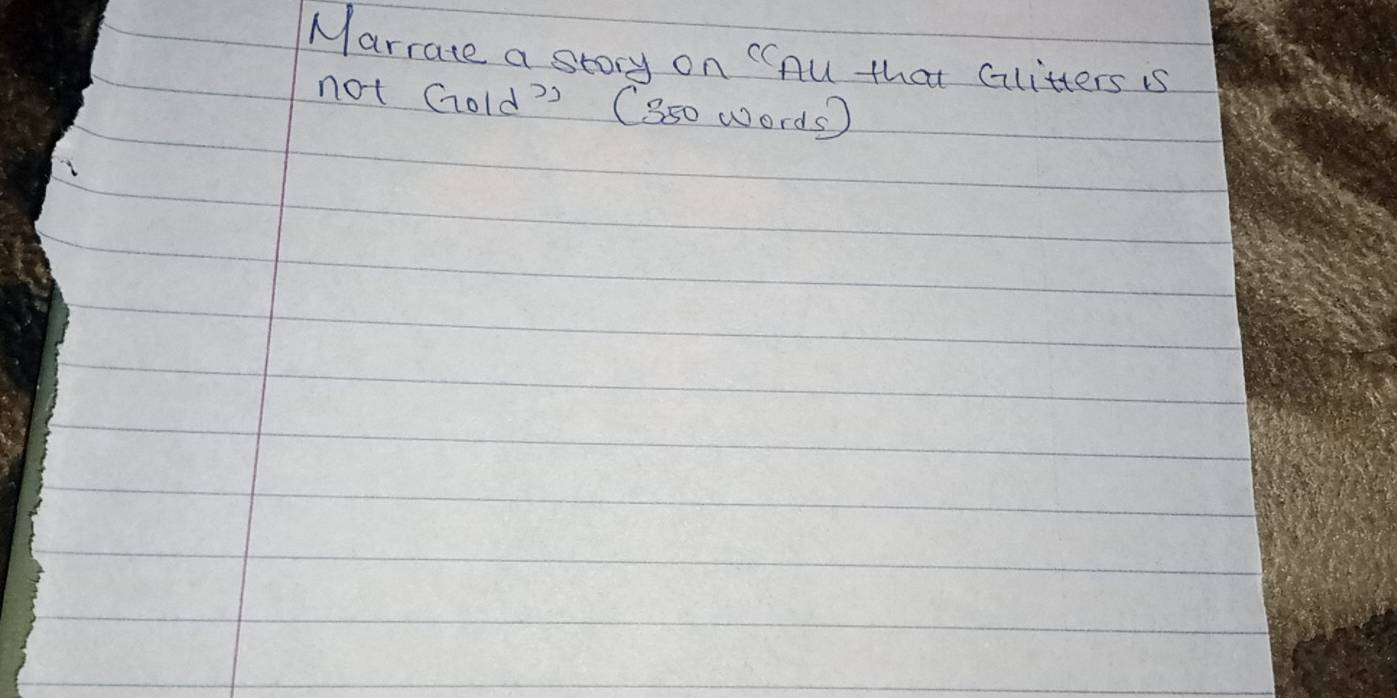 Narrate a story on "All that Glitters is
not Gold" (350 words)